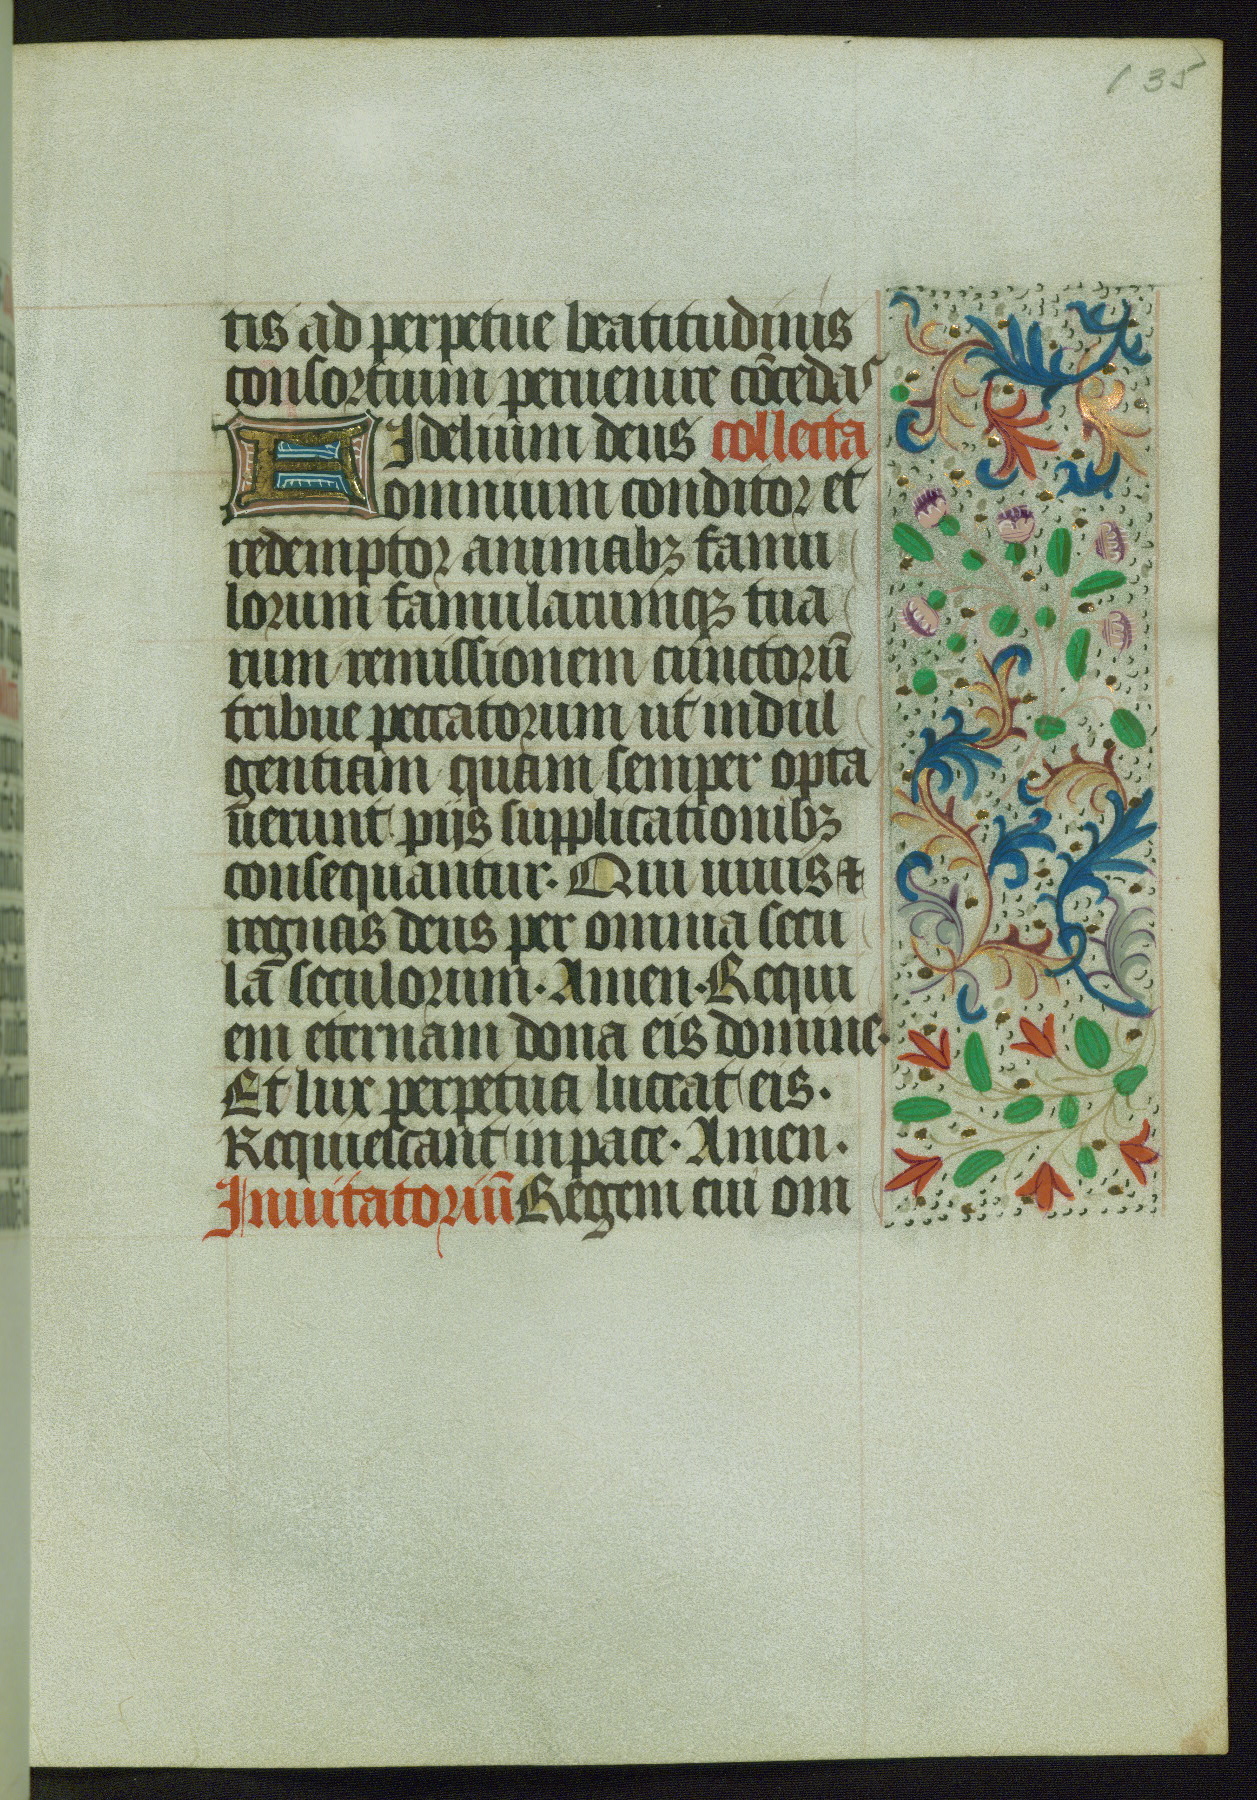 135
tis ad perpetue beatitudinis
consortium peruenire cōcedas
FIdelium deus collecta
omnium conditor et
redemptor animabꝫ famu
lorum famularumqꝫ tua
rum remissionem cunctorū
tribue peccatorum ut indul
gentiam quam semper opta
uerunt pijs supplicationibꝫ
consequantur. Qui uiuis ⁊
regnas deus per omnia secu
la seculorum. Amen. Requi
em eternam dona eis domine.
Et lux perpetua luceat eis.
Requiescant in pace. Amen.
Inuitatoriū Regem cui om